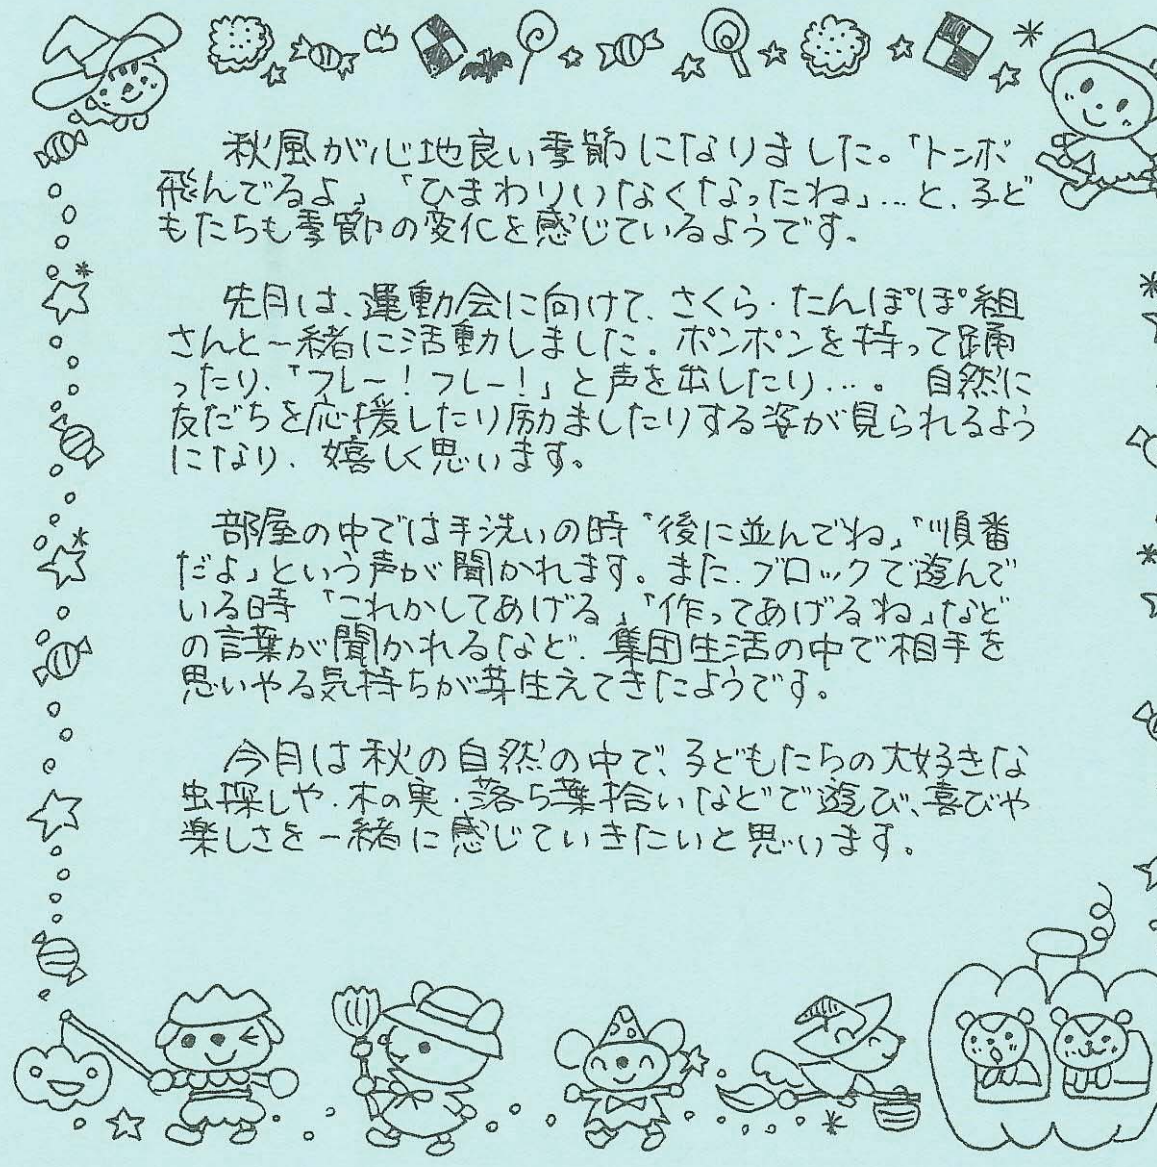 秋風が心地良い季節になりました。「トンボ
飛んでるよ」「ひまわりいなくなったね」…と、子ど
もたちも季節の変化を感じているようです。
先月は、運動会に向けて、さくら・たんぽぽ組
さんと一緒に活動しました。ポンポンを持って踊
ったり、「フレー！フレー！」と声を出したり…。自然に
友だちを応援したり励ましたりする姿が見られるよう
になり、嬉しく思います。
部屋の中では手洗いの時「後に並んでね」「順番
だよ」という声が聞かれます。また、ブロックで遊んで
いる時「これかしてあげる」「作ってあげるね」など
の言葉が聞かれるなど、集団生活の中で相手を
思いやる気持ちが芽生えてきたようです。
今月は秋の自然の中で、子どもたちの大好きな
虫探しや、木の実・落ち葉拾いなどで遊び、喜びや
楽しさを一緒に感じていきたいと思います。